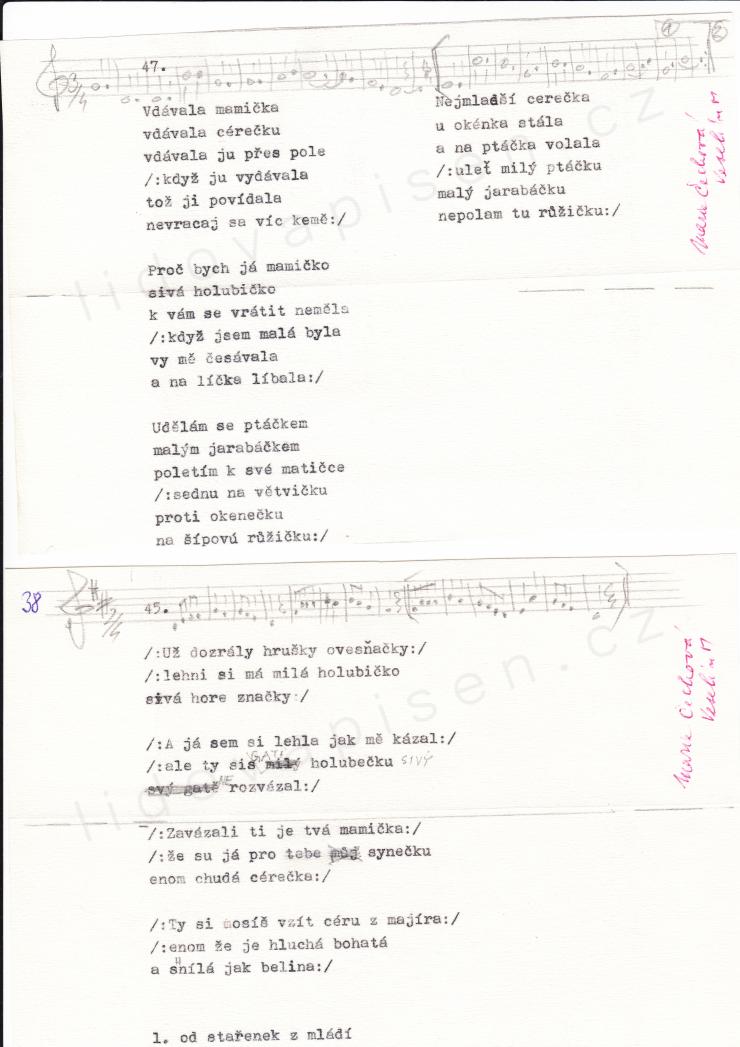 47.
3/4
1 2
Vdávala mamička
vdávala cérečku
vdávala ju přes pole
/:když ju vydávala
tož ji povídala
nevracaj sa víc kemě:/
Proč bych já mamičko
sivá holubičko
k vám se vrátit neměla
/:když jsem malá byla
vy mě česávala
a na líčka líbala:/
Udělám se ptáčkem
malým jarabáčkem
poletím k své matičce
/:sednu na větvičku
proti okenečku
na šípovú růžičku:/
Nejmladší cerečka
u okénka stála
a na ptáčka volala
/:uleť milý ptáčku
malý jarabáčku
nepolam tu růžičku:/
Marie Čechová
Veselí n M
lidovapisen.cz
38
2/4
45.
/:Už dozrály hrušky ovesňačky:/
/:lehni si má milá holubičko
sivá hore značky:/
/:A já sem si lehla jak mě kázal:/
/:ale ty sis GATI milý holubečku SIVÝ
svý gatě NE rozvázal:/
/:Zavázali ti je tvá mamička:/
/:že su já pro tebe můj synečku
enom chudá cérečka:/
/:Ty si mosíš vzít céru z majíra:/
/:enom že je hluchá bohatá
a šnílá jak belina:/
Marie Čechová
Veselí n M
lidovapisen.cz
1. od stařenek z mládí